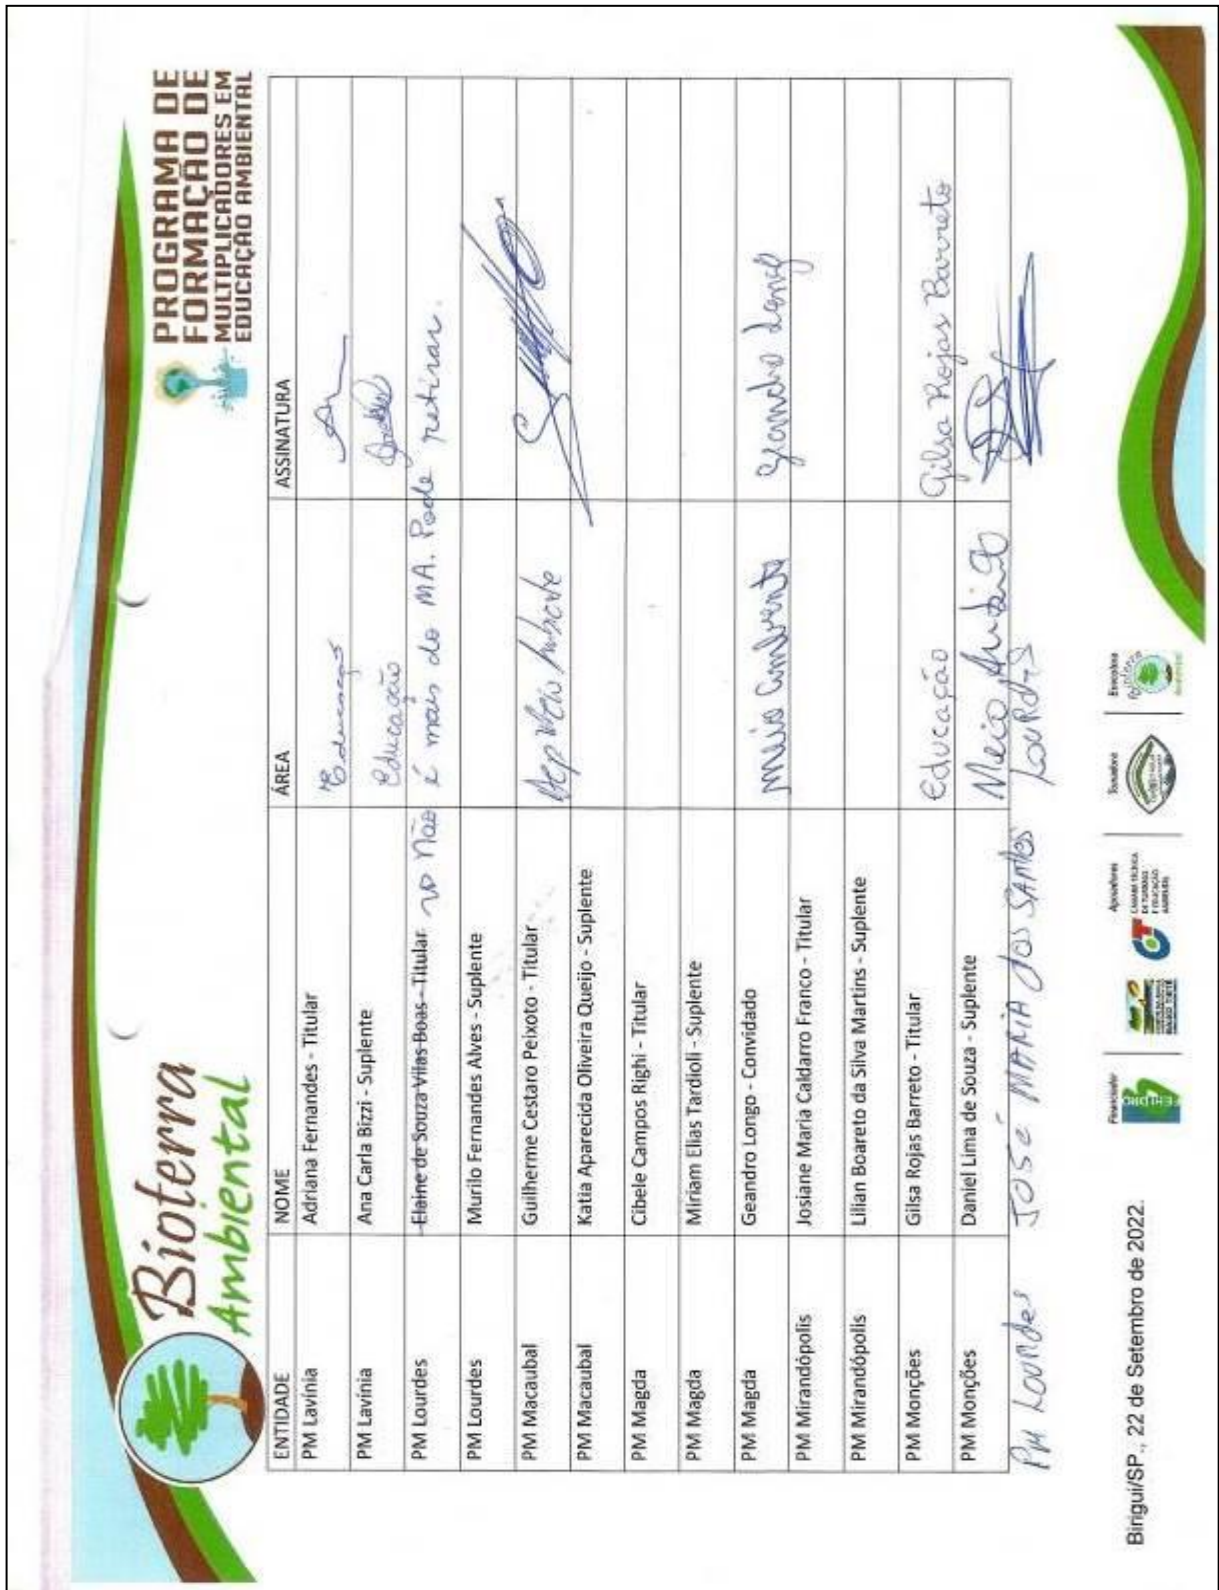 Bioterra
Ambiental
PROGRAMA DE
FORMAÇÃO DE
MULTIPLICADORES EM
EDUCAÇÃO AMBIENTAL
ENTIDADE NOME ÁREA ASSINATURA
PM Lavínia Adriana Fernandes - Titular Educação
PM Lavínia Ana Carla Bizzi - Suplente Educação
PM Lourdes Elaine de Souza Vilas Boas - Titular Não é mais do MA. Pode retirar.
PM Lourdes Murilo Fernandes Alves - Suplente
PM Macaubal Guilherme Cestaro Peixoto - Titular Dep Meio Ambiente
PM Macaubal Katia Aparecida Oliveira Queijo - Suplente
PM Magda Cibele Campos Righi - Titular
PM Magda Miriam Elias Tardioli - Suplente
PM Magda Geandro Longo - Convidado Meio Ambiente Geandro Longo
PM Mirandópolis Josiane Maria Caldarro Franco - Titular
PM Mirandópolis Lilian Boareto da Silva Martins - Suplente
PM Monções Gilsa Rojas Barreto - Titular Educação Gilsa Rojas Barreto
PM Monções Daniel Lima de Souza - Suplente Meio Ambiente
PM Lourdes JOSÉ MARIA dos SANTOS LOURDES
Birigui/SP., 22 de Setembro de 2022.
Financiador Apoiadores Tomadora Executora
FEHIDRO
BAIXO TIETÊ
CT
CÂMARA TÉCNICA
DE TURISMO
E EDUCAÇÃO
AMBIENTAL